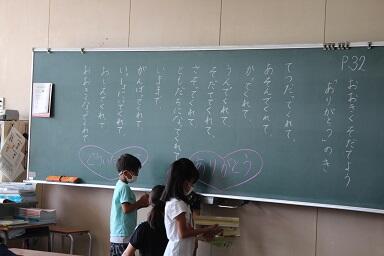 P.32
おおきくそだてよう
「ありがとう」のき
てつだってくれて、
あそんでくれて、
かってくれて、
うんでくれて
そだててくれて、
さそってくれて、
ともだちになってくれて
います。
がんばってくれて、
いっしょにいてくれて
おしえてくれて、
おおきくなってくれて
ありがとう